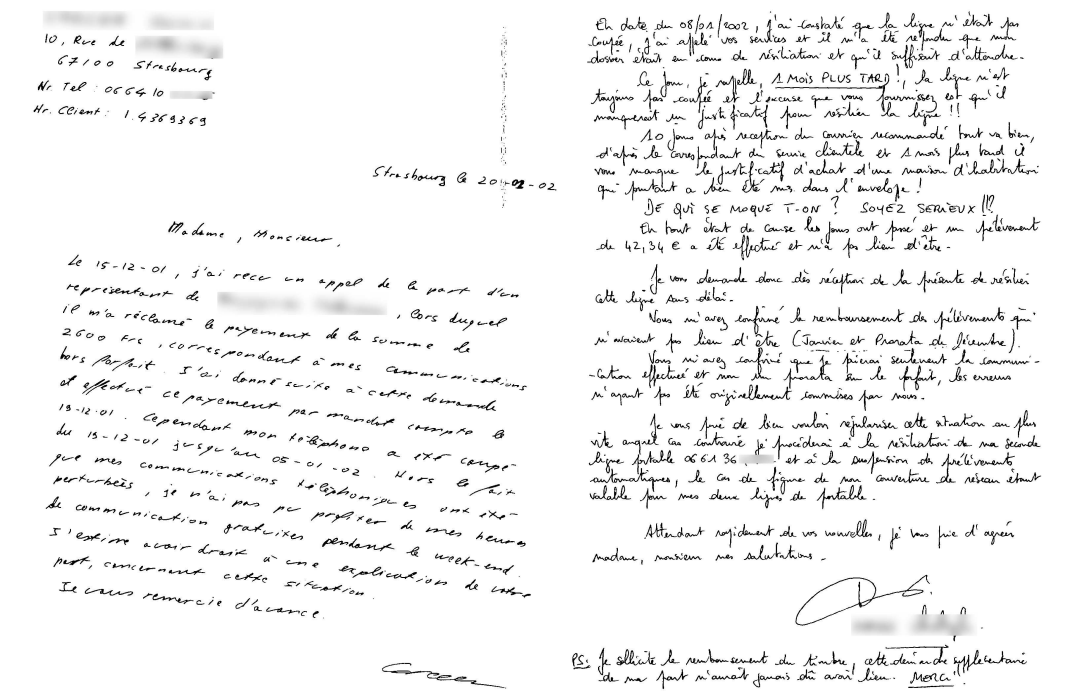 10, Rue de
67100 Strasbourg
Nr. Tel : 066410
Nr. Client : 1.4369369
Strasbourg le 20-02-02
Madame, Monsieur,
Le 15-12-01, j'ai recu un appel de la part d'un
représentant de , lors duquel
il m'a réclamé le payement de la somme de
2600 Frs, correspondant à mes communications
hors forfait. J'ai donné suite à cette demande
et effectué ce payement par mandat compte le
19-12-01. Cependant mon téléphone a été coupé
du 15-12-01 jusqu'au 05-01-02. Hors le fait
que mes communications téléphoniques ont été
perturbées, je n'ai pas pu profiter de mes heures
de communication gratuites pendant le week-end.
J'estime avoir droit à une explication de votre
part, concernant cette situation.
Je vous remercie d'avance.
En date du 08/01/2002, j'ai constaté que la ligne n'était pas
coupée, j'ai appelé vos services et il m'a été répondu que mon
dossier était en cours de résiliation et qu'il suffisait d'attendre.
Ce jour, je rappelle, 1 MOIS PLUS TARD !, la ligne n'est
toujours pas coupée et l'excuse que vous fournissez est qu'il
manquerait un justificatif pour résilier la ligne !!
10 jours après reception du courrier recommandé tout va bien,
d'après le correspondant du service clientele et 1 mois plus tard il
vous manque le justificatif d'achat d'une maison d'habitation
qui pourtant a bien été mis dans l'envelope !
DE QUI SE MOQUE T-ON ? SOYEZ SERIEUX !!?
En tout état de cause les jours ont passé et un prélèvement
de 42,34 € a été effectué et n'a pas lieu d'être.
Je vous demande donc dès réception de la présente de résilier
cette ligne sans délai.
Vous m'avez confirmé le remboursement des prélèvements qui
n'avaient pas lieu d'être (Janvier et Prorata de Décembre).
Vous m'avez confirmé que je paierai seulement la communi-
-cation effectuée et non un prorata sur le forfait, les erreurs
n'ayant pas été originellement commises par nous.
Je vous prie de bien vouloir régulariser cette situation au plus
vite auquel cas contraire je procéderai à la résiliation de ma seconde
ligne portable 06 61 36 et à la suspension des prélèvements
automatiques, le cas de figure de non couverture de réseau étant
valable pour mes deux lignes de portable.
Attendant rapidement de vos nouvelles, je vous prie d'agréer
madame, monsieur mes salutations.
PS: Je sollicite le remboursement du timbre, cette demande supplémentaire
de ma part n'aurait jamais dû avoir lieu. MERCI !!